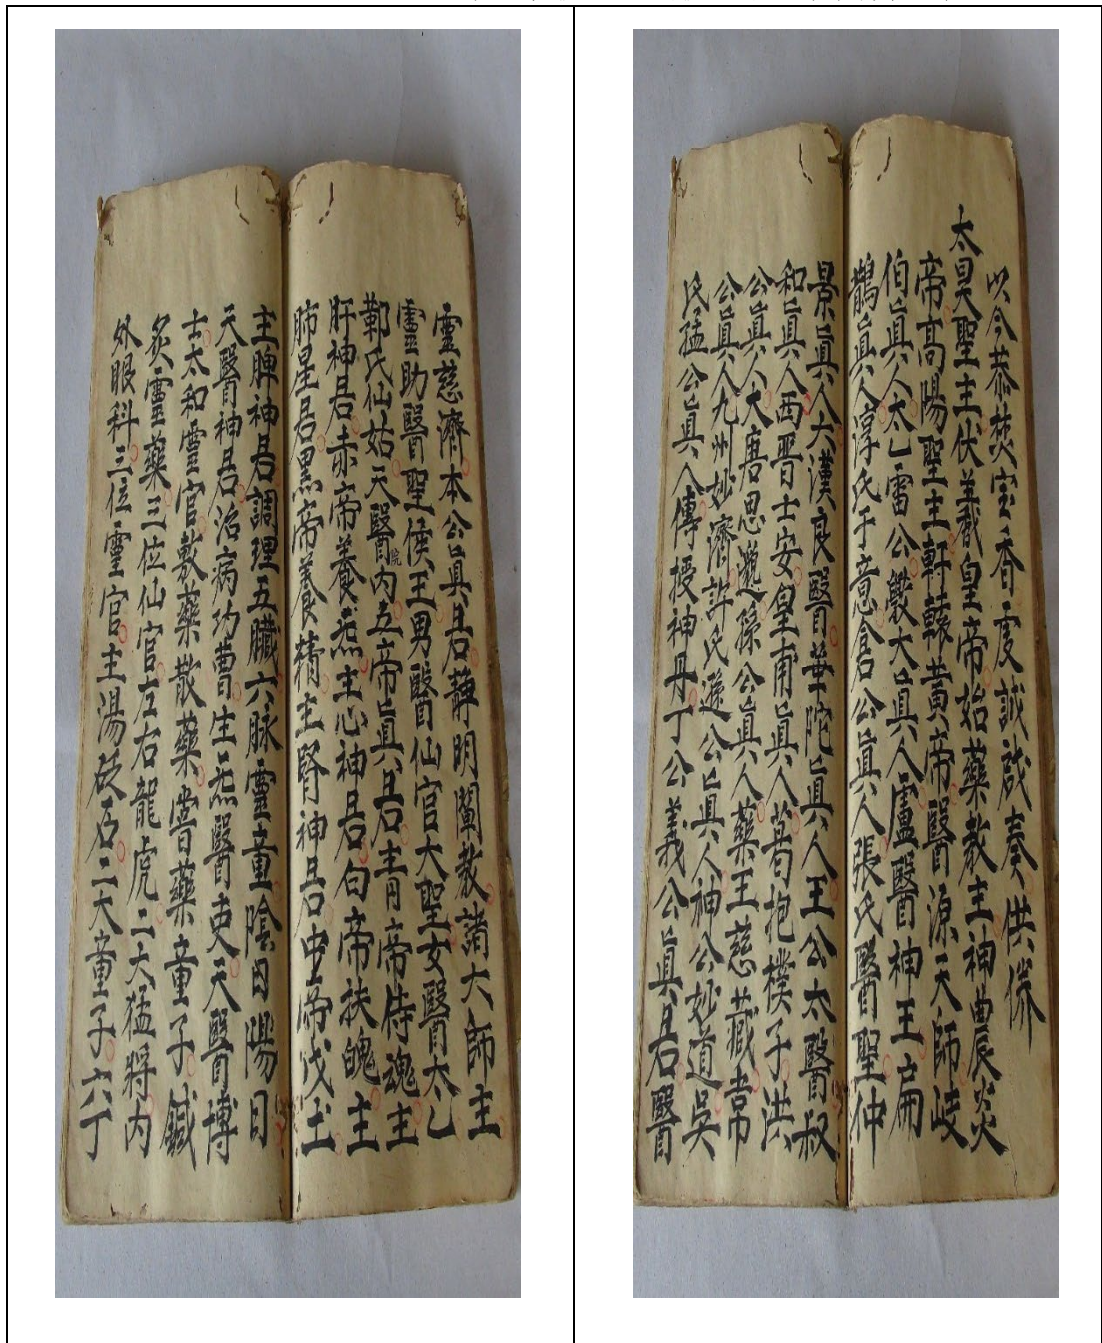 以今恭焚宝香虔誠啟奏供養
太昊聖主伏羲皇帝始藥教主神農炎
帝高陽聖主軒轅黃帝醫源天師岐
伯真人太乙雷公大真人盧醫神王扁
鵲真人淳氏于意倉公真人張氏醫聖仲
景真人大漢良醫華陀真人王公太醫叔
和真人西晋士安皇甫真人葛抱樸子洪
公真人大唐思邈孫公真人藥王慈藏常
公真人九州妙濟許氏遜公真人神公妙道吳
氏猛公真人傳授神丹丁公義公真君醫
靈慈濟本公真君靜明闡教諸大師主
靈助醫聖侯王男醫仙官大聖女醫太乙
鄞氏仙姑天醫院內五帝真君青帝侍魂主
肝神君赤帝養炁主心神君白帝扶魄主
肺星君黑帝養精主腎神君中帝戊土
主脾神君調理五臟六脉靈童陰日陽日
天醫神君治病功曹生炁醫吏天醫博
士太和靈官敷藥散藥嘗藥童子鍼
炙靈藥三位仙官左右龍虎二大猛將內
外眼科三位靈官主湯砭石二大童子六丁